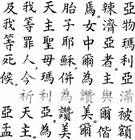 亞物瑪利亞滿被額
辣濟亞者主與爾偕
焉女中爾為讚美爾
胎子耶穌並為讚美。
天主聖母瑪利亞為
我等罪人、今祈天主、
及我等死候。亞孟。